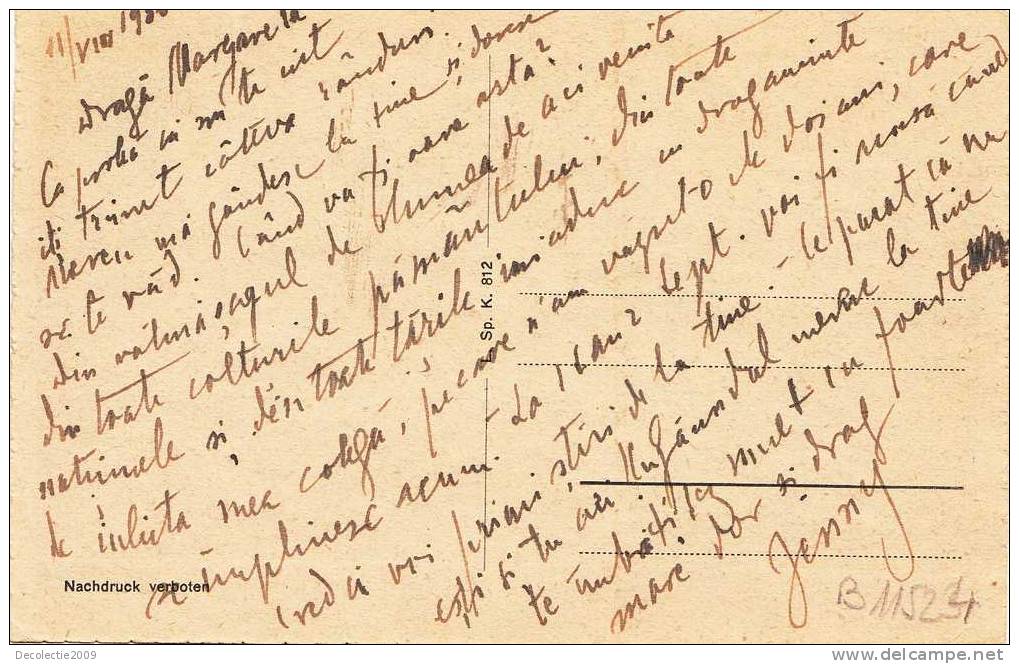 11/VIII 19
Dragă Margareta
Ca probă că nu te uit
iți trimet câteva rânduri.
Mereu mă gândesc la tine și doresc
să te văd. Când va fi oare asta?
din vălmășagul de lumea de aci venită
din toate colțurile pământului, din toate
națiunele și din toate țările mi aduc cu drag aminte
de iubita mea colegă, pe care n'am văzut-o de doi ani, care
împlinesc acum. - La 1 Sept. voi fi acasă când
cred că voi primi știri de la tine. - Se parat că nu
ești și tu cu gândul mereu la tine
te îmbrățișez mult cu foarte
mare dor și drag
Jenny
L Sp. K. 812
Nachdruck verboten
B 11523
Decolectie2009
delcampe.net